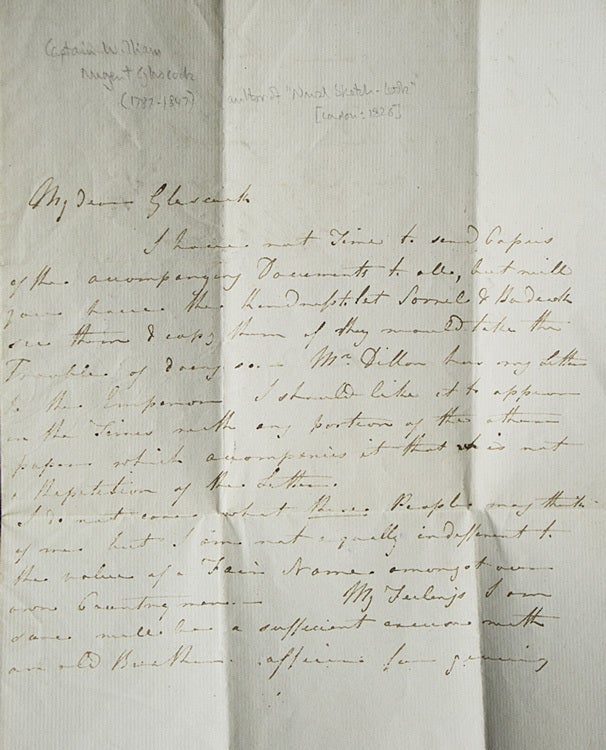 Captain William
Nugent Glascock
(1787-1847)
author of "Naval Sketch-book"
[London: 1826]
My dear Glascock
I have not Time to send Copies
of the accompanying Documents to all, but will
you have the Kindness to let Sorrel &
see them & copy them if they would take the
Trouble of doing so. Mr. Dillon has my Letter
to the Emperor I should like it to appear
in the Times with any portion of the other
papers which accompanies it that is not
a Repetition of the Letter.
I do not care what these People may think
of me but I am not equally indifferent to
the value of a Fair Name amongst our
own Countrymen. My Feelings I am
sure will be a sufficient excuse with
an old Brother officer for giving